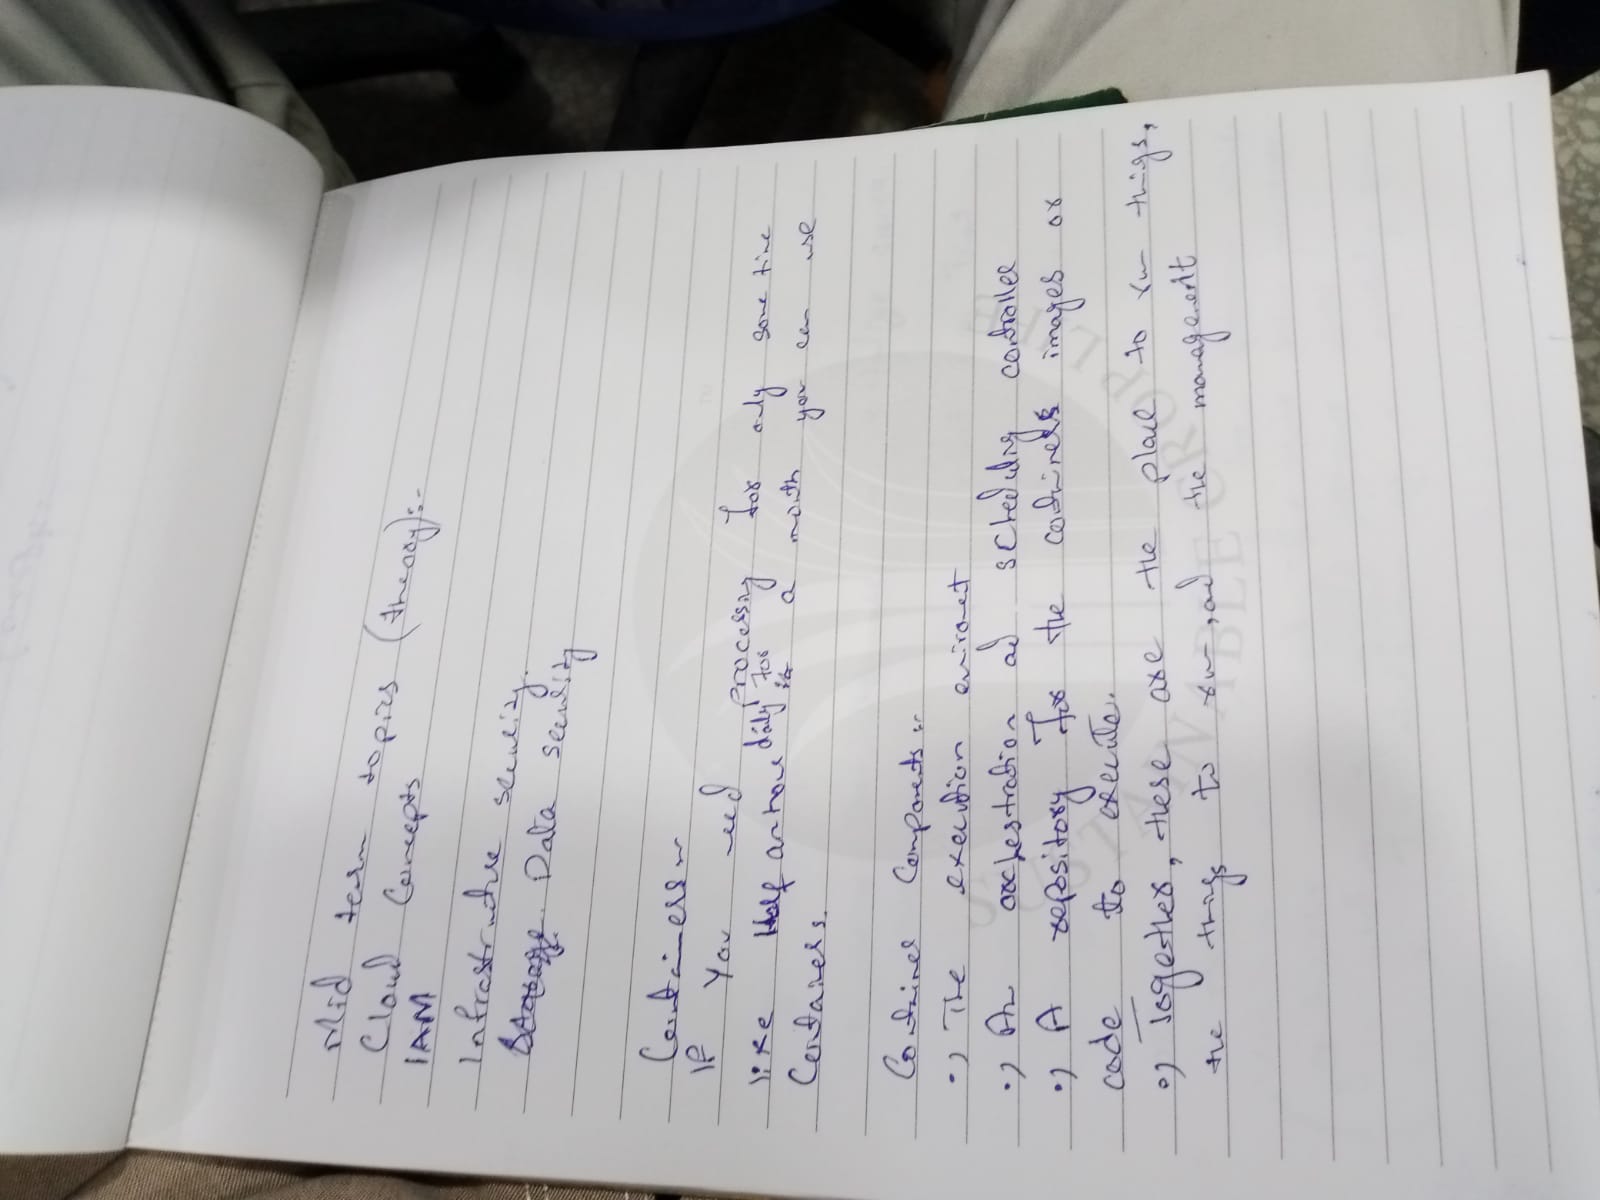 Mid term topics (theory):-
Cloud Concepts
IAM
Infrastructure security.
Data security
Containers
If you need processing for only some time
like Half an hour daily for a month you can use
Containers.
Container Components:-
•) The execution enviromet
•) An orchestration ad scheduling controller
•) A repository for the containers images or
code to execute.
•) Together, these are the place to run things,
the things to run, and the management
SUSTAINABLE CROPLIFE